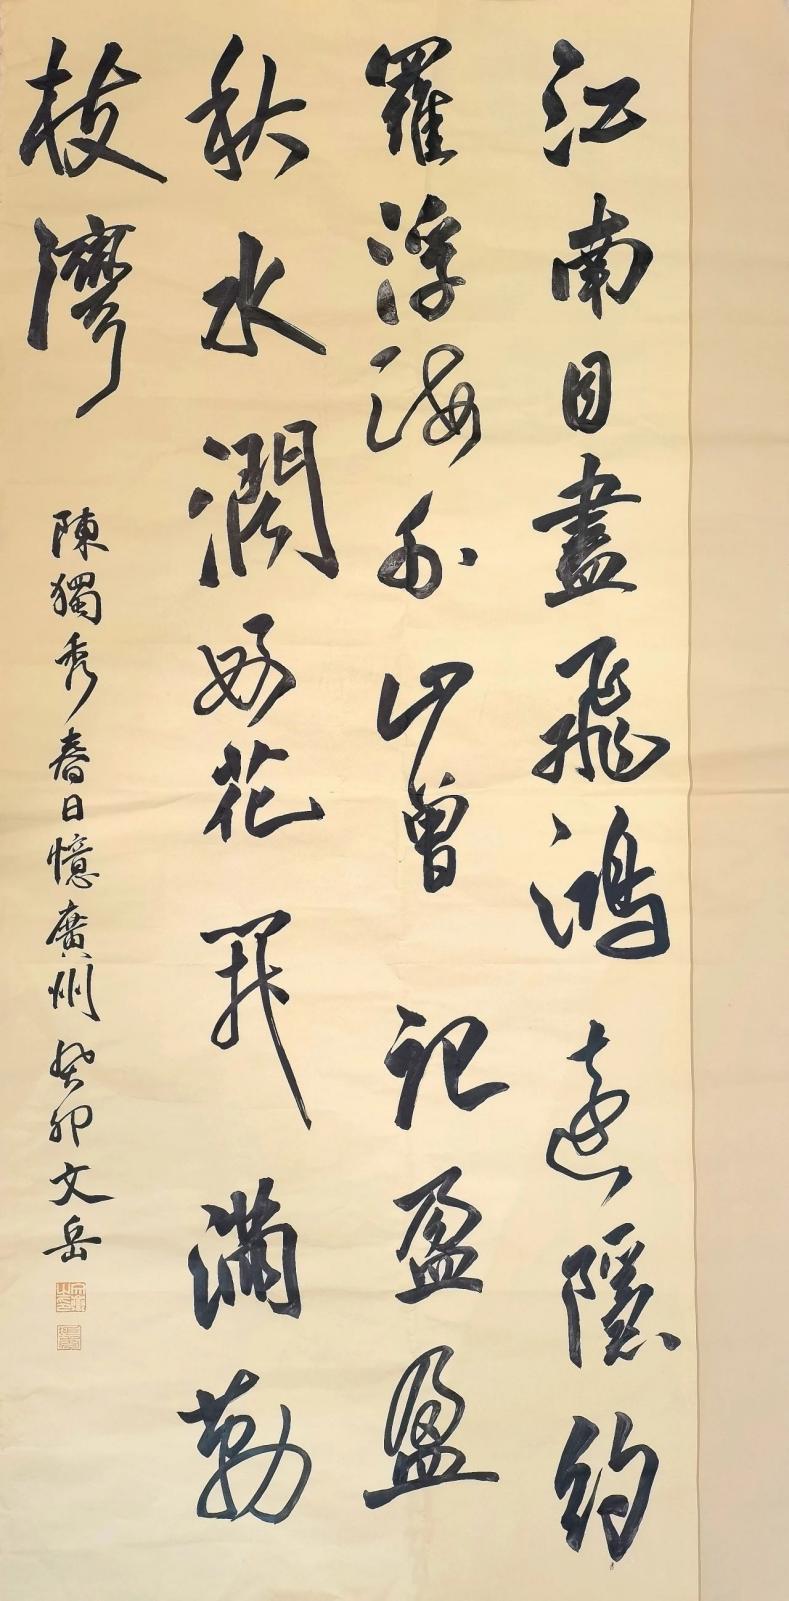 江南目盡飛鴻遠隱約
羅浮海外山曾記盈盈
秋水濶好花開滿荔
枝灣
陳獨秀春日憶廣州癸卯文岳